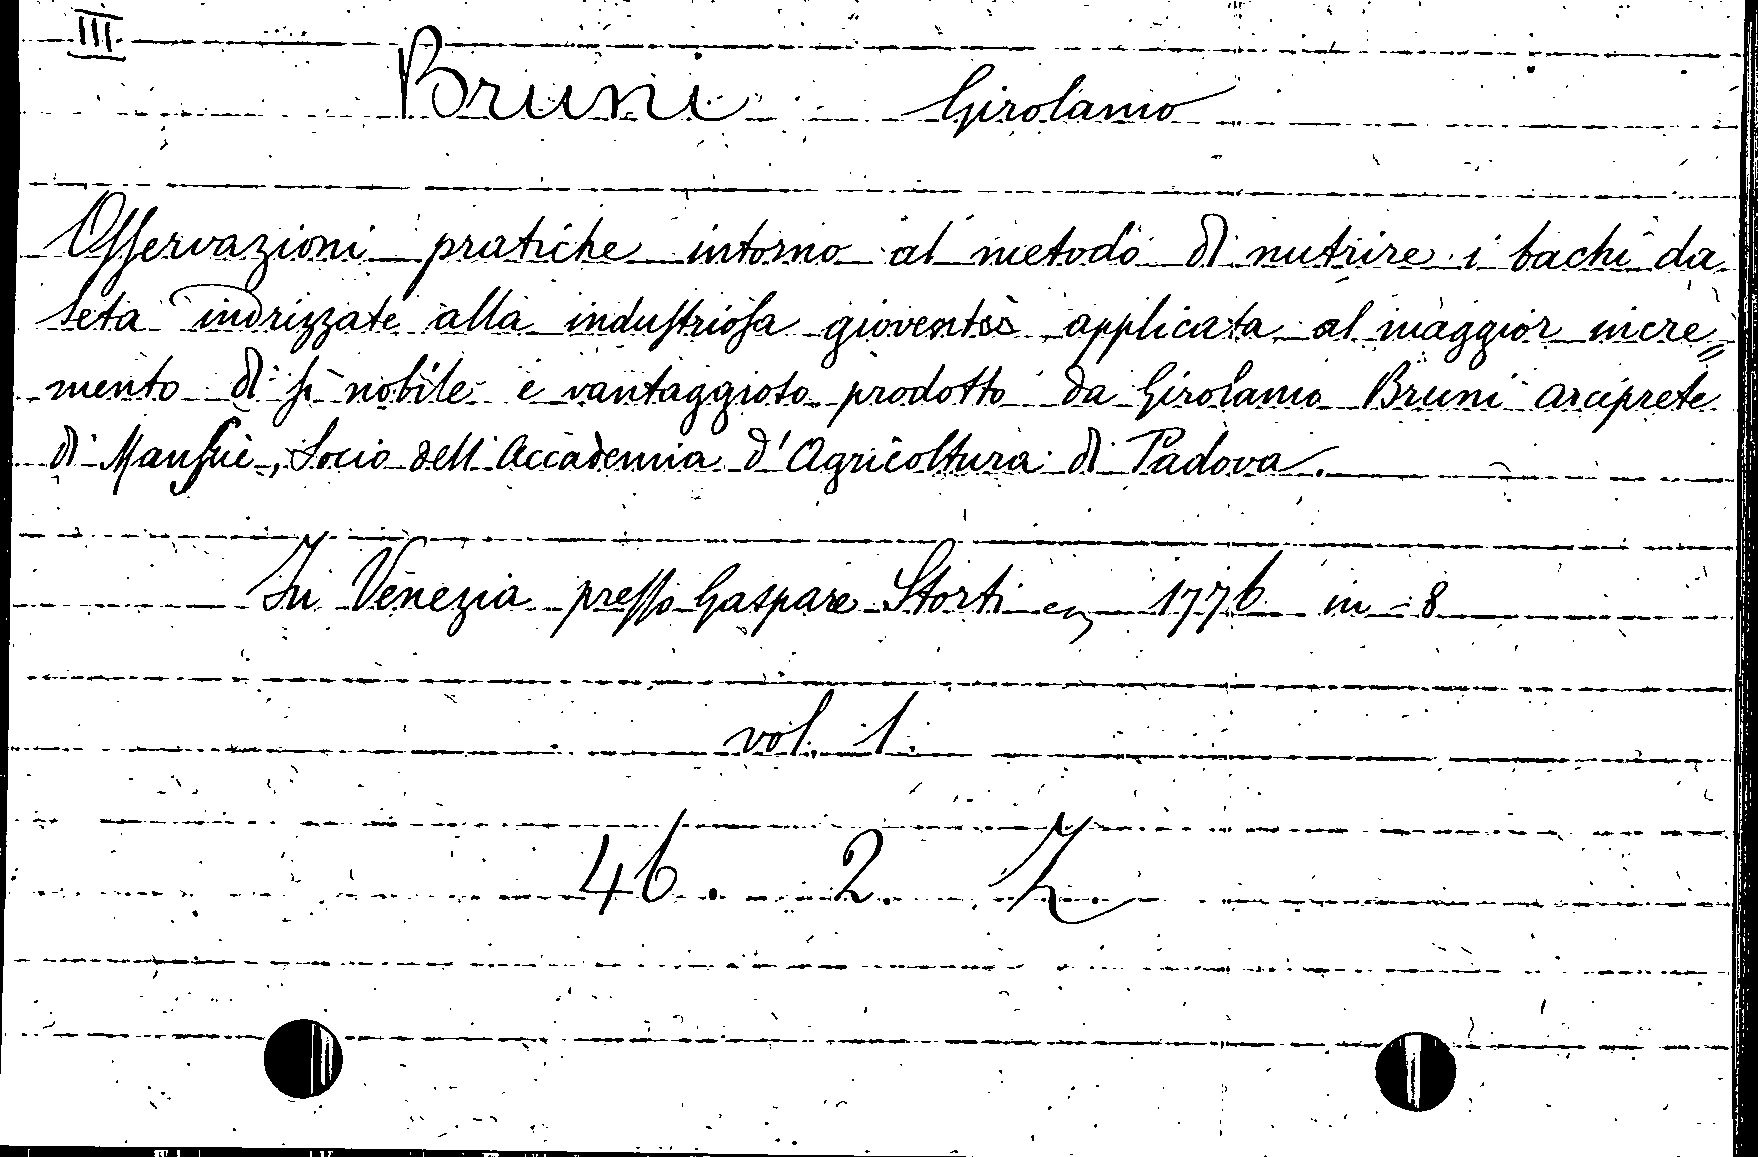 III
Bruni Girolamo
Osservazioni pratiche intorno al metodo di nutrire i bachi da
seta indrizzate alla industriosa gioventù applicata al maggior incre=
mento di sì nobile e vantaggioso prodotto da Girolamo Bruni arciprete
di Mansuè, Socio dell'Accademia d'Agricoltura di Padova.
In Venezia presso Gaspare Storti 1776 in-8
vol. 1.
46. 2. Z.